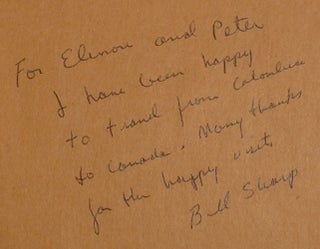 For Elinore and Peter
I have been happy
to travel from Colombia
to Canada. Many thanks
for the happy visit,
Bill Sharp